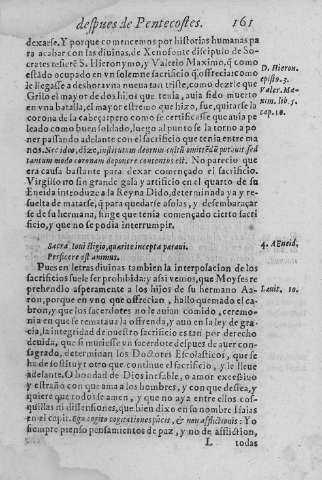 despues de Pentecostes. 161
dexarse. Y porque comencemos por historias humanas pa
ra acabar con las diuinas, de Xenofonte discipulo de So-
crates refiere S. Hieronymo, y Valerio Maximo, q̃ como
estãdo ocupado en vn solemne sacrificio q̃ offrecia: como
le llegasse a deshora vna nueua tan triste, como dezirle que
Grilo el mayor de dos hijos que tenia, auia sido muerto
en vna batalla, el mayor estremo que hizo, fue, quitarse la
corona de la cabeça: pero como se certificasse que auia pe
leado como buen soldado, luego al punto se la torno a po
ner passando adelante con el sacrificio que tenia entre ma
nos.
tantum modo coronam deponere contentus est. No parecio que
era causa bastante para dexar començado el sacrificio.
Virgilio no sin grande gala y artificio en el quarto de su
Eneida introduze a la Reyna Dido, determinada ya y re-
suelta de matarse, q̃ para quedarse a solas, y desembaraçar
se de su hermana, finge que tenia començado cierto sacri
ficio, y que no se podia interrumpir.
D. Hieron.
epist. 3.
Valer. Ma-
xim. lib. 5.
cap. 10.
Sacra Ioui stigio, quæ rite incepta paraui.
Perficere est animus.
4. AEneid.
Pues en letras diuinas tambien la interpolacion de los
sacrificios suele ser prohibida: y asi vemos, que Moyses re
prehendio asperamente a los hijos de su hermano Aa-
ron, porque en vno que offrecian, hallo quemado el ca-
bron, y que los sacerdotes no le auian comido, ceremo-
nia en que se remataua la offrenda, y aun en la ley de gra-
cia, la integridad de nuestro sacrificio es tan por derecho
deuida, que si muriesse vn sacerdote despues de auer con-
sagrado, determinan los Doctores Escolasticos, que se
ha de sostituyr otro que continue el sacrificio, y le lleue
adelante. O bondad de Dios inefable, o amor excessiuo
y estraño con que ama a los hombres, y con que dessea, y
quiere que todos se amen, y que no aya entre ellos cos-
quillas ni dissensiones, que bien dixo en su nombre Isaias
en el capit. Ego cogito cogitationes pacis, & non afflictionis: Yo
siempre pienso pensamientos de paz, y no de affliction,
Leuit. 10.
L todas